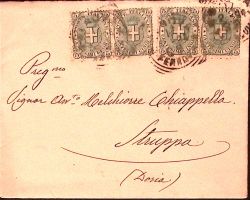 Preg.mo
Signor Avv.to Melchiorre Chiappella
Struppa
(Doria)